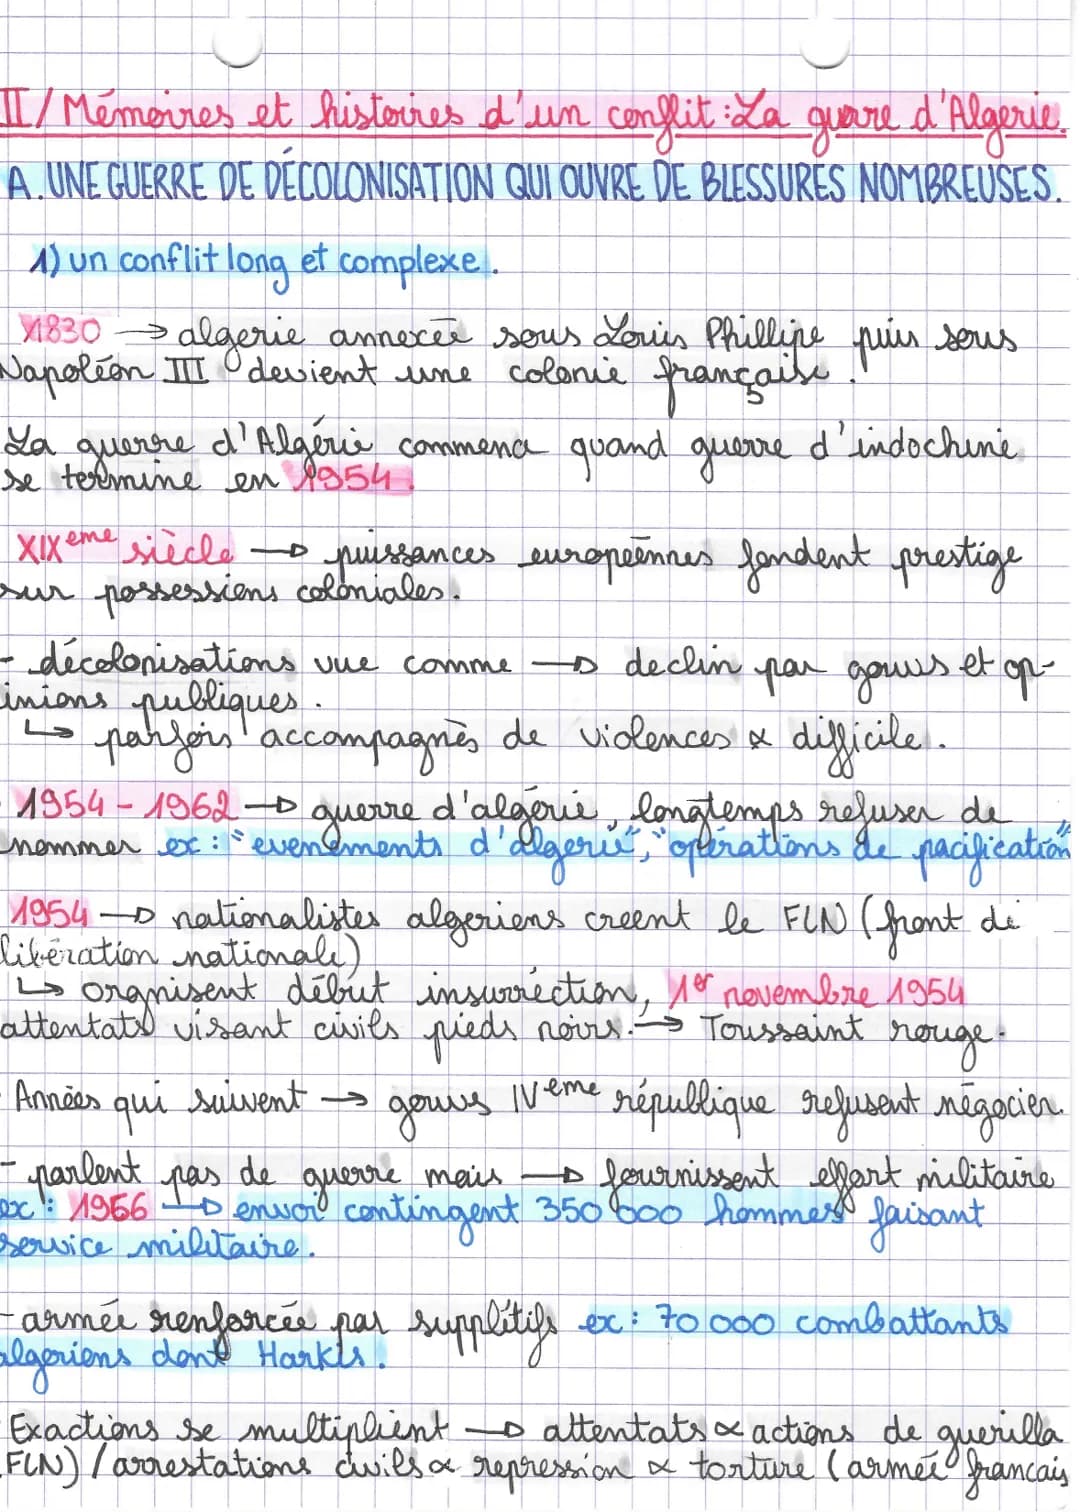 II/ Mémoires et histoires d'un conflit : La guerre d'Algerie.
A. UNE GUERRE DE DÉCOLONISATION QUI OUVRE DE BLESSURES NOMBREUSES.
1) un conflit long et complexe.
1830 → algerie annexée sous Louis Phillipe puis sous
Napoléon III devient une colonie française.
La guerre d'Algérie commence quand guerre d'indochine
se termine en 1954.
XIXeme siècle → puissances européennes fondent prestige
sur possessions coloniales.
- décolonisations vue comme → declin par gouvs et op-
inions publiques.
↳ parfois accompagnés de violences & difficile.
1954 - 1962 → guerre d'algérie, longtemps refuser de
nommer ex : "evenements d'algerie", "opérations de pacification"
1954 → nationalistes algeriens creent le FLN (front de
libération nationale)
↳ organisent début insurréction, 1er novembre 1954
attentats visant civils pieds noirs. → Toussaint rouge.
Années qui suivent → gouvs IVeme république refusent négocier.
- parlent pas de guerre mais → fournissent effort militaire
ex : 1956 → envoi contingent 350 000 hommes faisant
service militaire.
- armée renforcée par supplétifs ex : 70 000 combattants
algeriens dont Harkis.
Exactions se multiplient → attentats & actions de guerilla
FLN) / arrestations civils & repression & torture (armée français